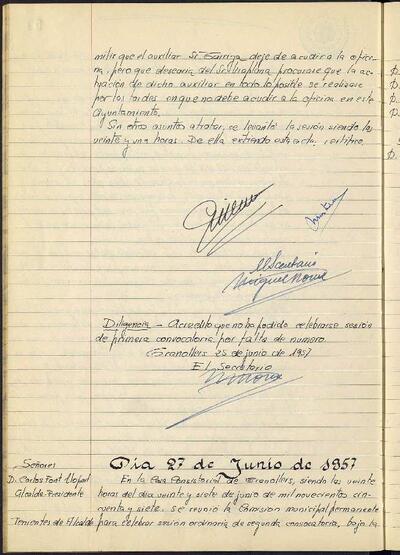 mitir que el auxiliar Sr. Garriga deje de acudir a la ofici-
na, pero que desearia del Sr. Uraplana procurase que la ac-
tuación de dicho auxiliar en todo lo posible se realizase
por las tardes en que no debe acudir a la oficina en este
Ayuntamiento.
Sin otros asuntos a tratar, se levantó la sesión siendo las
veinte y una horas. De ella extiendo esta acta, certifico,
El Secretario
Diligencia - Acredito que no ha podido celebrarse sesión
de primera convocatoria por falta de numero.
Granollers 25 de junio de 1957
El Secretario
Día 27 de Junio de 1957
Señores
D. Carlos Font Llopart
Alcalde-Presidente
Tenientes de Alcalde
En la Casa Consistorial de Granollers, siendo las veinte
horas del día veinte y siete de junio de mil novecientos cin-
cuenta y siete. Se reunió la Comision municipal permanente
para celebrar sesion ordinaria de segunda convocatoria, bajo la
D.
D.
D.
S
D.